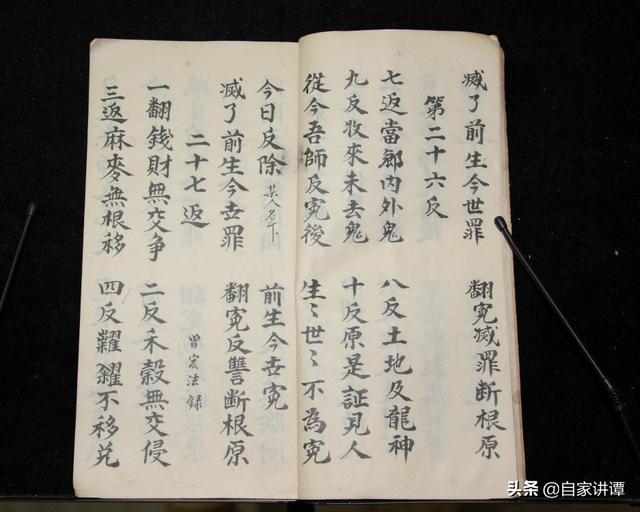 減了前生今世罪 翻寃滅罪断根原
第二十六反
七返當郷内外鬼 八反土地及龍神
九反收來未去鬼 十反原是証見人
從今吾師反寃後 生〻世〻不為寃
今日反除某人名下 前生今世寃
減了前生今世罪 翻寃反讐断根原
二十七返 曽宏法録
一翻錢財無交争 二反禾穀無交侵
三返麻麥無根移 四反糶糴不移兑
头条 @自家讲谭